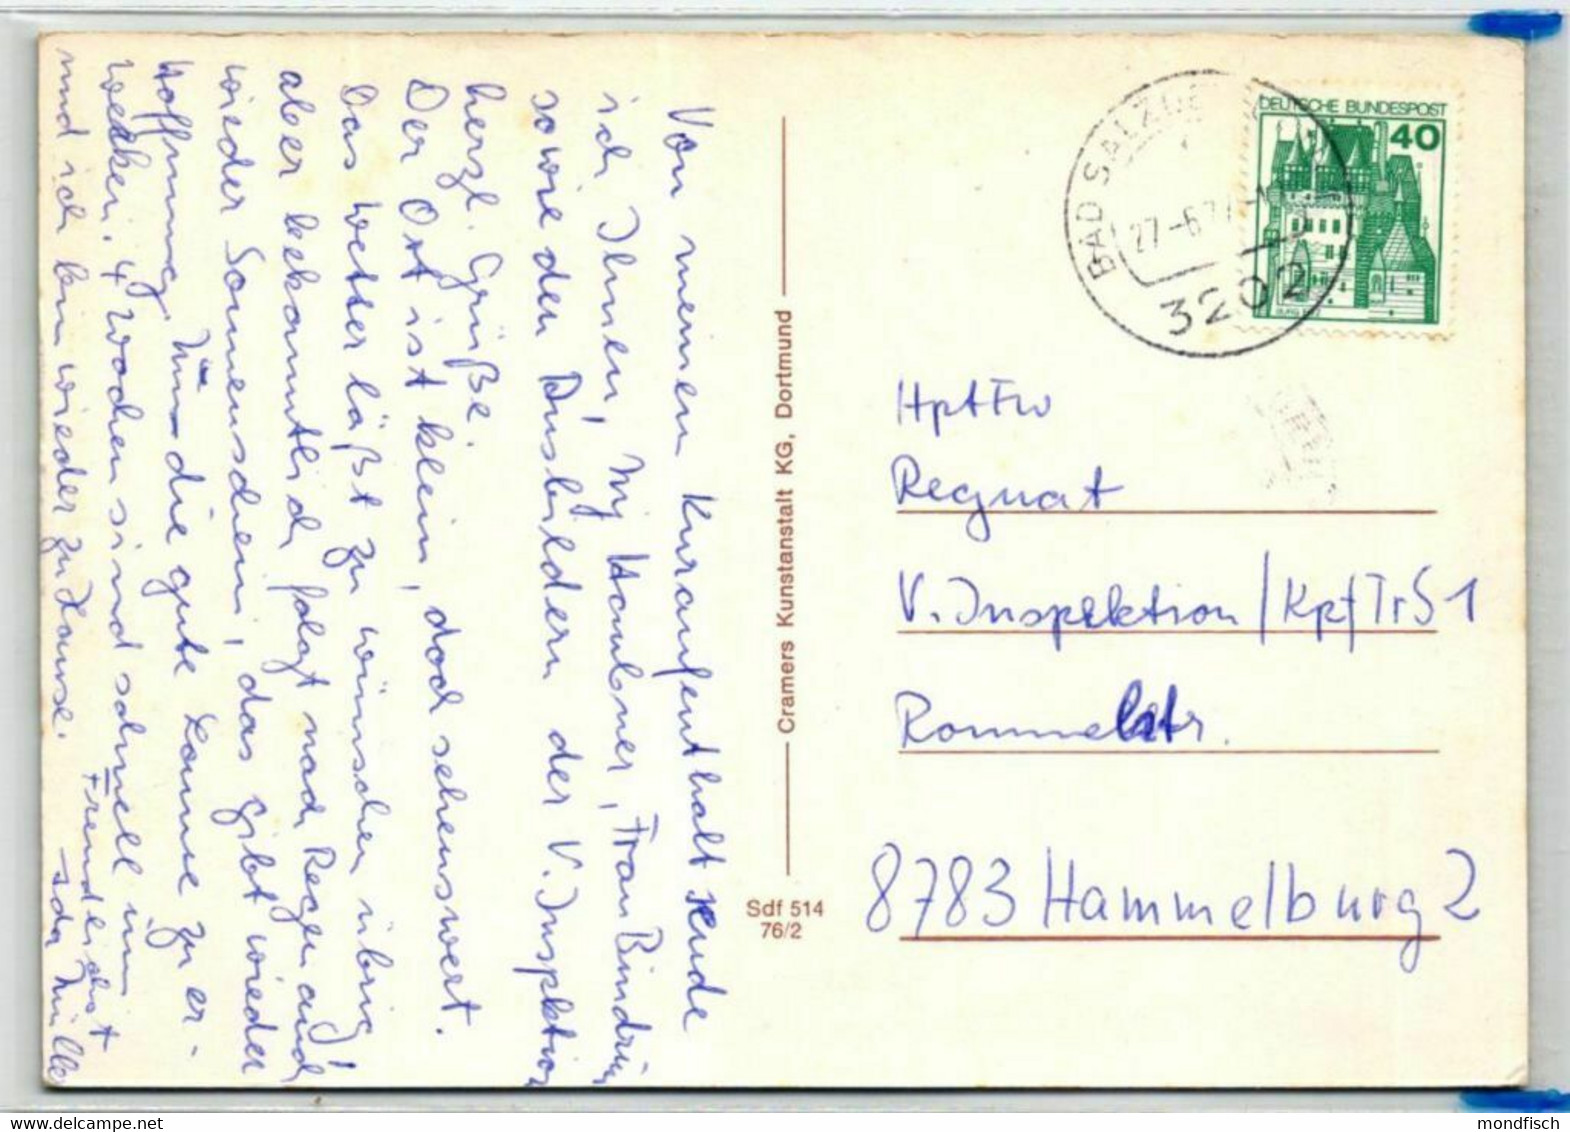 Von meinen Kuraufenthalt sende
ich Ihnen, Mj Hambner, Frau
sowie den Ausbildern der V. Inspektion
herzl. Grüße.
Der Ort ist klein, doch sehenswert.
Das Wetter läßt zu wünschen übrig,
aber bekanntlich folgt nach Regen auch
wieder Sonnenschein, das gibt wieder
Hoffnung, um die gute Laune zu er-
wecken. 4 Wochen sind schnell um
und ich bin wieder zu Hause.
Freundlichst
Müller
Cramers Kunstanstalt KG, Dortmund
Sdf 514
76/2
DEUTSCHE BUNDESPOST
40
27-6.77
3202
HptFw
Regnat
V. Inspektion / KpfTrS 1
Rommelstr.
8783 Hammelburg 2
mondfisch